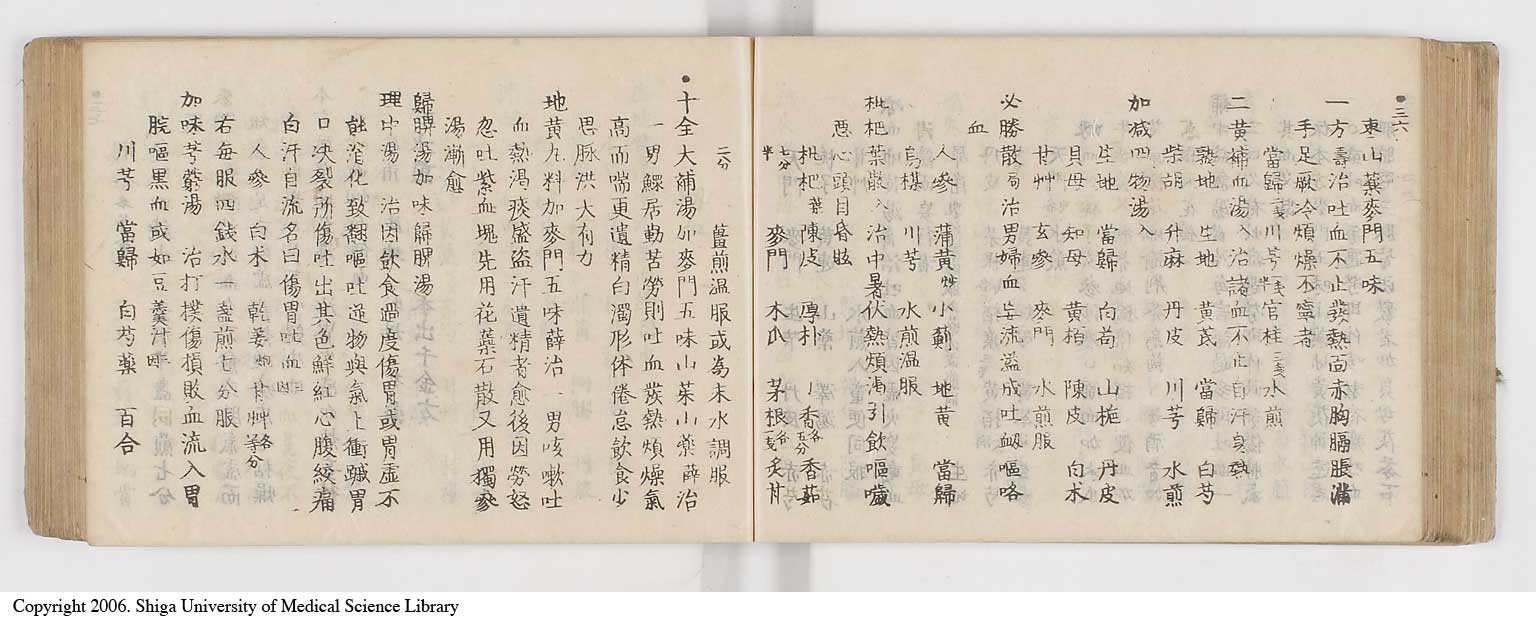 三六
東山藥麥門五味
一方壽治吐血不止發熱面赤胸膈脹滿
手足厥冷煩燥不寧者
當歸二戔川芎一戔半官桂三戔水煎
二黃補血湯入治諸血不止自汗身熱
熟地 生地 黃芪 當歸 白芍
柴胡 升麻 丹皮 川芎 水煎
加减四物湯入
生地 當歸 白芍 山梔 丹皮
貝母 知母 黃栢 陳皮 白术
甘艸 玄參 麥門 水煎服
必勝散局治男婦血妄流溢成吐衂嘔咯
血
人參 蒲黃炒 小薊 地黃 當歸
烏梅 川芎 水煎温服
枇杷葉散入治中暑伏熱煩渴引飲嘔噦
惡心頭目昏眩
枇杷葉陳皮 厚朴 丁香各五分香茹
七分半 麥門 木瓜 茅根各一戔炙甘
二分 薑煎温服或為末水調服
十全大補湯加麥門五味山茱山藥薛治
一男鰥居勤苦勞則吐血發熱煩燥氣
高而喘更遺精白濁形体倦怠飲食少
思脉洪大有力
地黃丸料加麥門五味薛治一男咳嗽吐
血熱渴痰盛盜汗遺精者愈後因勞怒
忽吐紫血塊先用花蘂石散又用獨參
湯漸愈
歸脾湯加味歸脾湯
理中湯治因飲食過度傷胃或胃虛不
能消化致翻嘔吐逆物與氣上衝蹴胃
口决裂所傷吐出其色鮮紅心腹絞痛
白汗自流名曰傷胃吐血
人參 白术 乾姜炮甘艸各等分
右每服四錢水一盞煎七分服
加味芎藭湯 治打撲傷損敗血流入胃
脘嘔黑血或如豆羹汁
川芎 當歸 白芍藥 百合
Copyright 2006. Shiga University of Medical Science Library